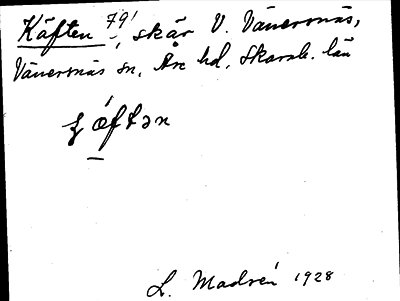 Käften 79/, skär V. Vänersnäs,
Vänersnäs sn, Åse hd, Skarab. län
ɕǽftən
L. Modéen 1928